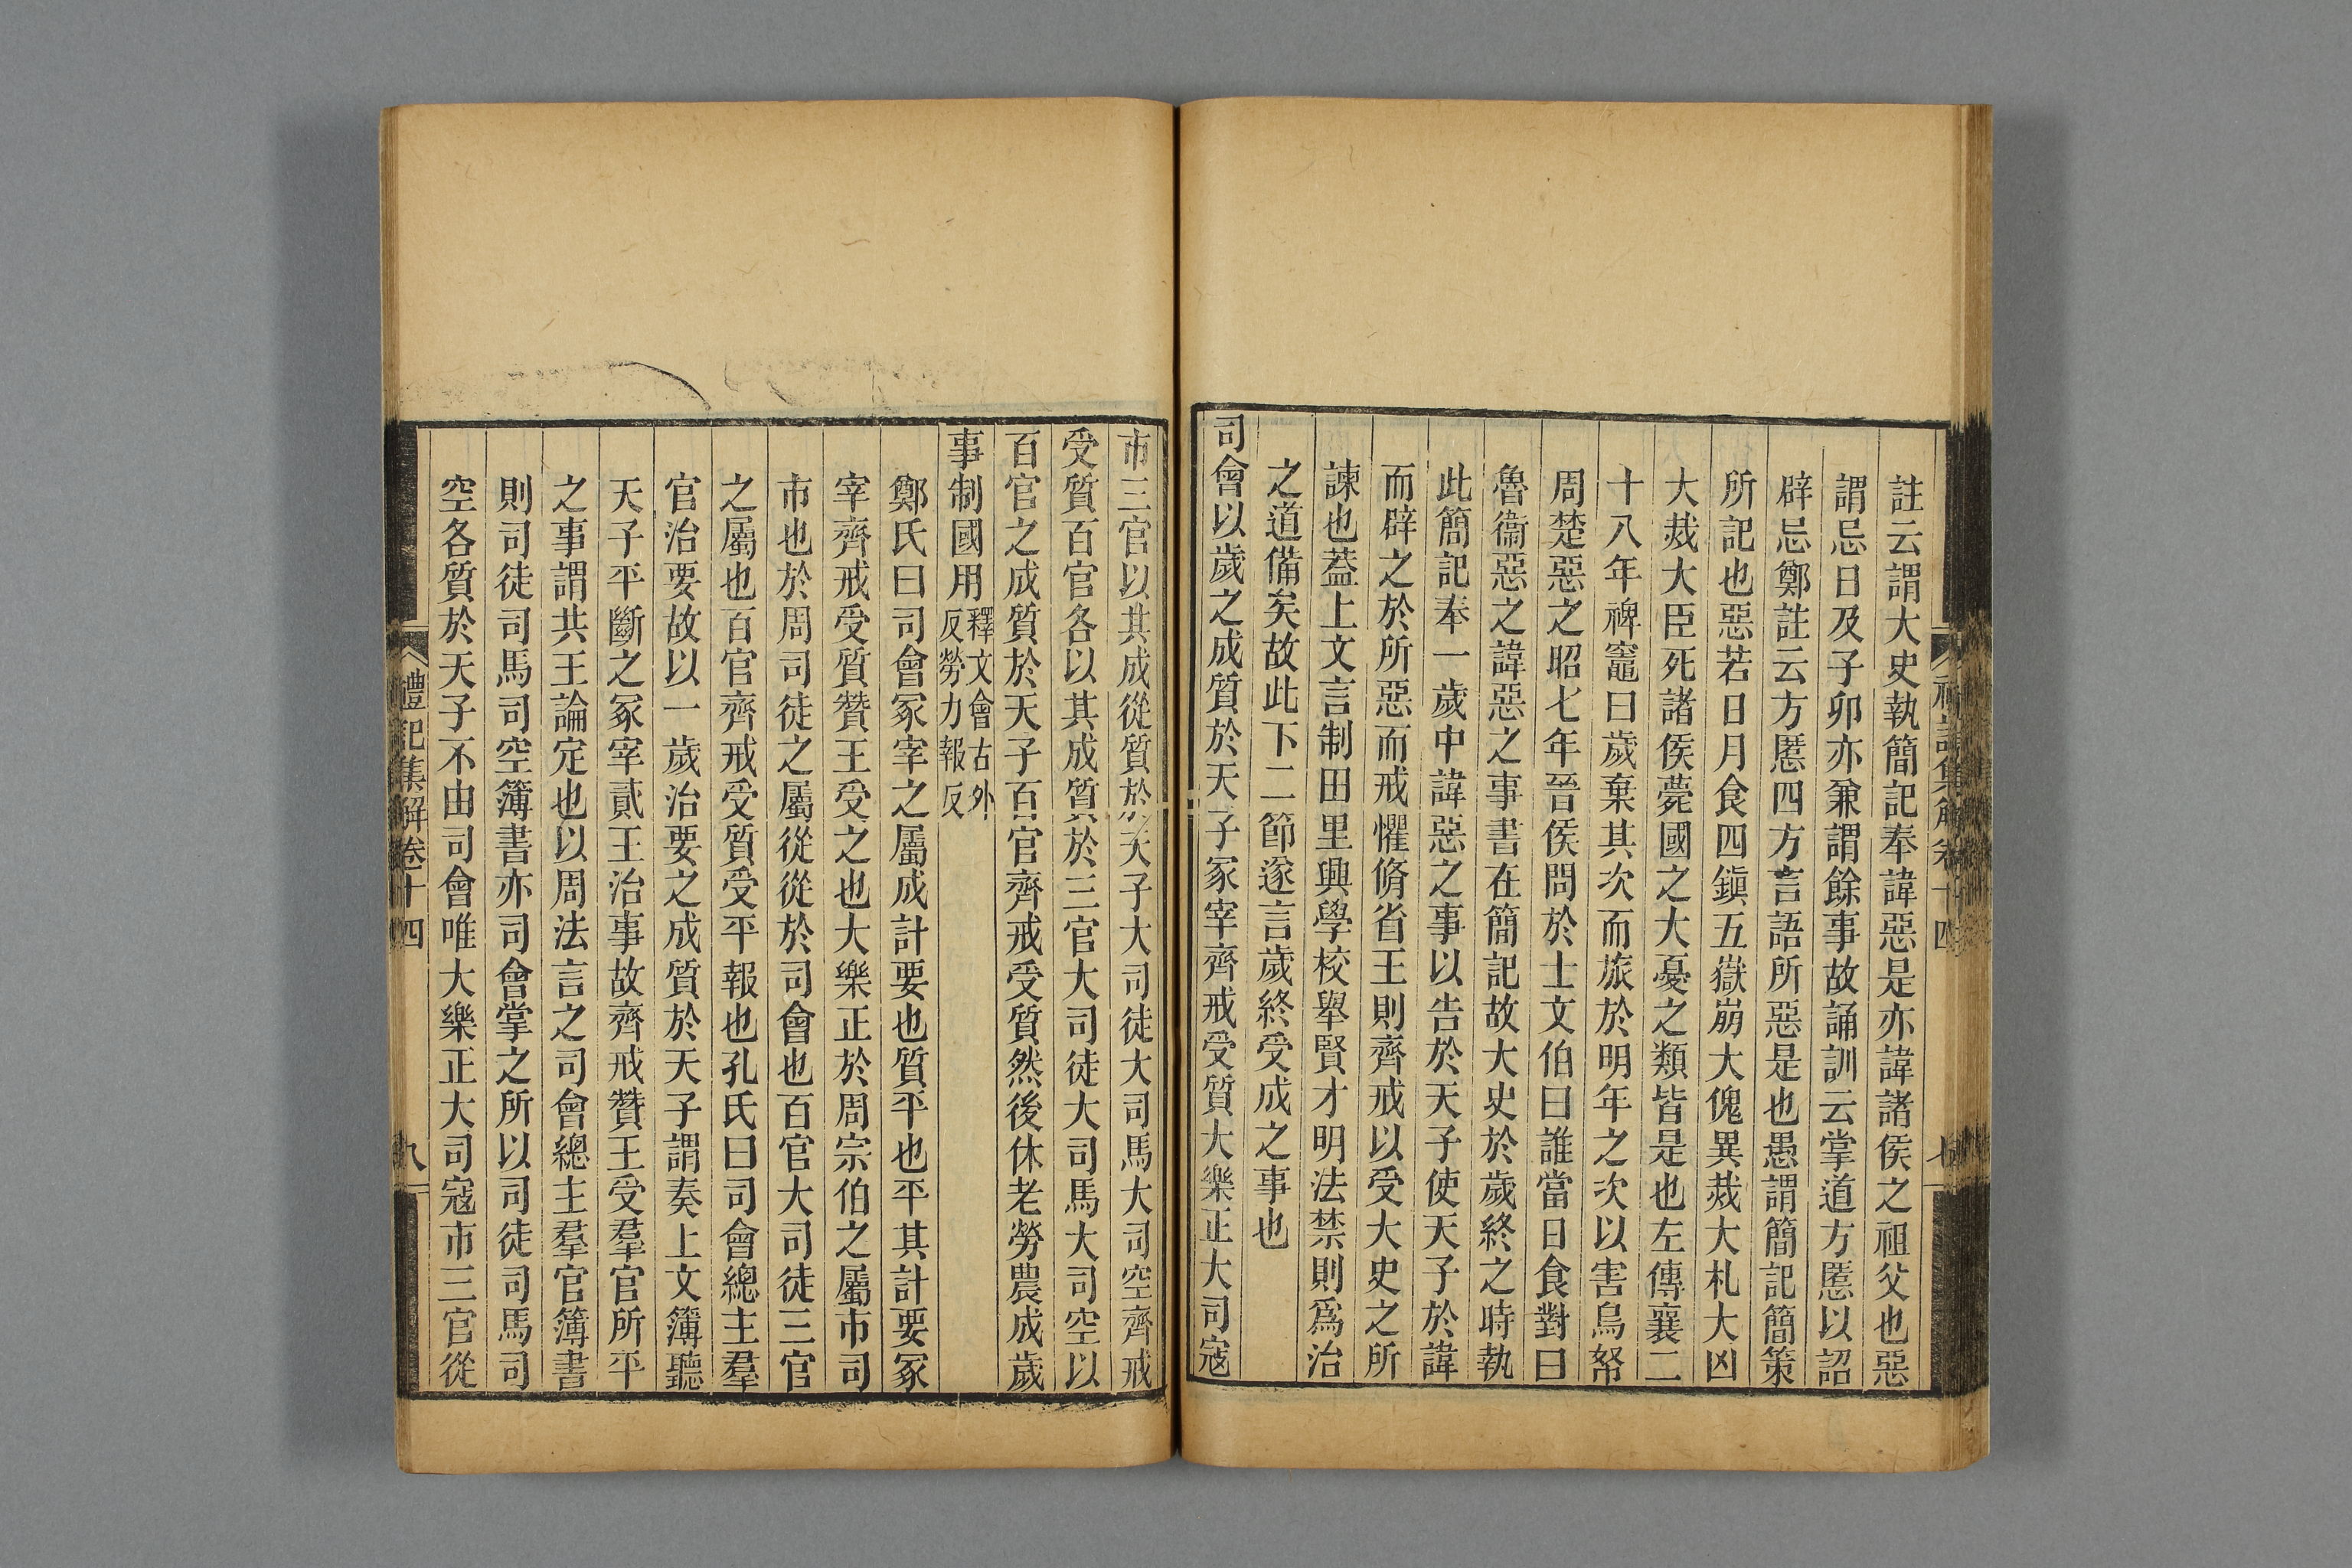 註云謂大史執簡記奉諱惡是亦諱諸侯之祖父也惡
謂忌日及子卯亦兼謂餘事故誦訓云掌道方慝以詔
辟忌鄭註云方慝四方言語所惡是也愚謂簡記簡策
所記也惡若日月食四鎮五嶽崩大傀異烖大札大凶
大烖大臣死諸侯薨國之大憂之類皆是也左傳襄二
十八年裨竈曰歲棄其次而旅於明年之次以害鳥帑
周楚惡之昭七年晉侯問於士文伯曰誰當日食對曰
魯衞惡之諱惡之事書在簡記故大史於歲終之時執
此簡記奉一歲中諱惡之事以告於天子使天子於諱
而辟之於所惡而戒懼脩省王則齊戒以受大史之所
諫也蓋上文言制田里興學校舉賢才明法禁則爲治
之道備矣故此下二節遂言歲終受成之事也
司會以歲之成質於天子冢宰齊戒受質大樂正大司寇
市三官以其成從質於天子大司徒大司馬大司空齊戒
受質百官各以其成質於三官大司徒大司馬大司空以
百官之成質於天子百官齊戒受質然後休老勞農成歲
事制國用釋文會古外反勞力報反
鄭氏曰司會冢宰之屬成計要也質平也平其計要冢
宰齊戒受質贊王受之也大樂正於周宗伯之屬市司
市也於周司徒之屬從從於司會也百官大司徒三官
之屬也百官齊戒受質受平報也孔氏曰司會總主羣
官治要故以一歲治要之成質於天子謂奏上文簿聽
天子平斷之冢宰貳王治事故齊戒贊王受羣官所平
之事謂共王論定也以周法言之司會總主羣官簿書
則司徒司馬司空簿書亦司會掌之所以司徒司馬司
空各質於天子不由司會唯大樂正大司寇市三官從
禮記集解卷十四
九